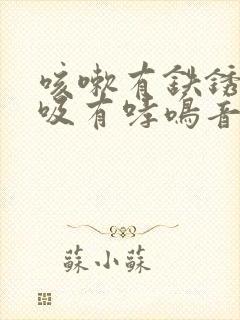 咳嗽有鉄锈
吸有哮鳴音
蘇小蘇